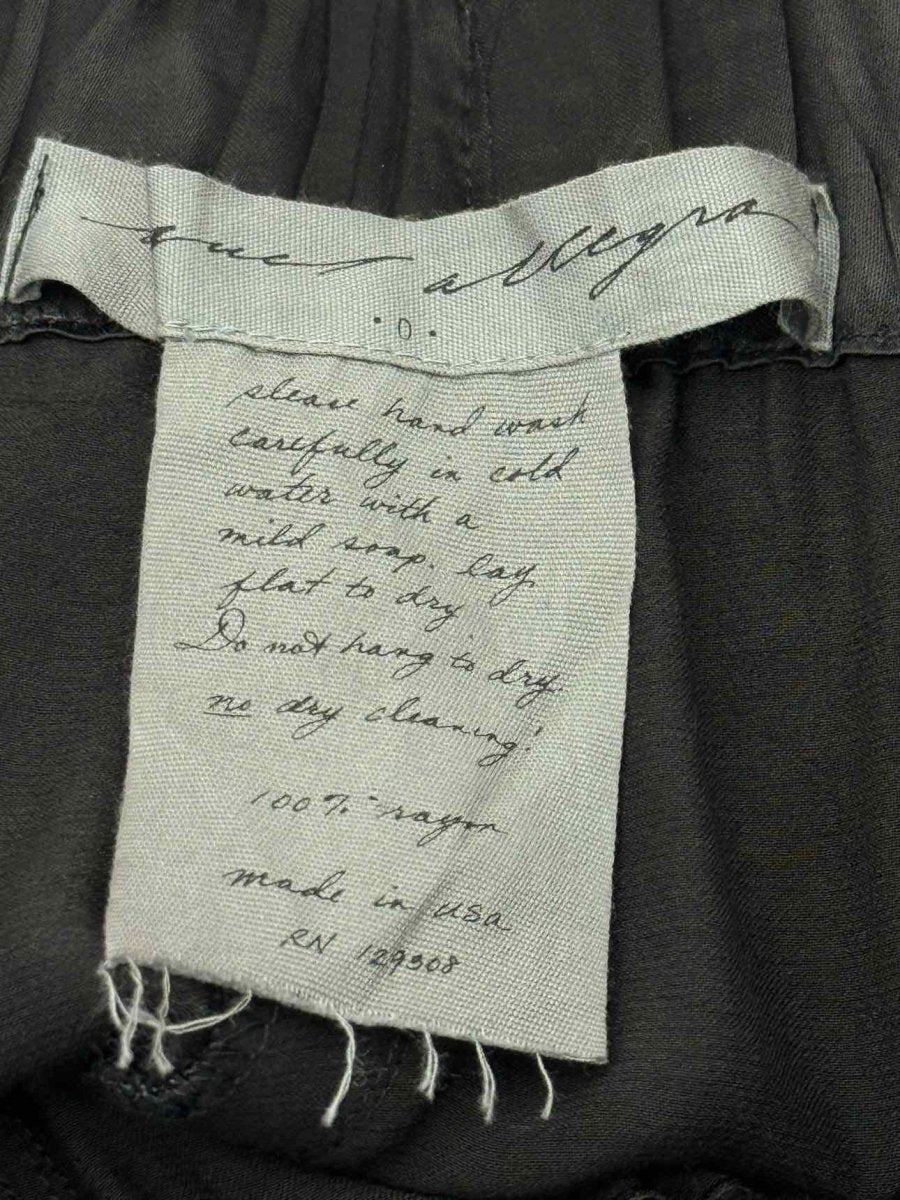 allegra
. 0 .
please hand wash
carefully in cold
water with a
mild soap. lay
flat to dry
Do not hang to dry.
no dry cleaning!
100% rayon
made in usa
RN 129308